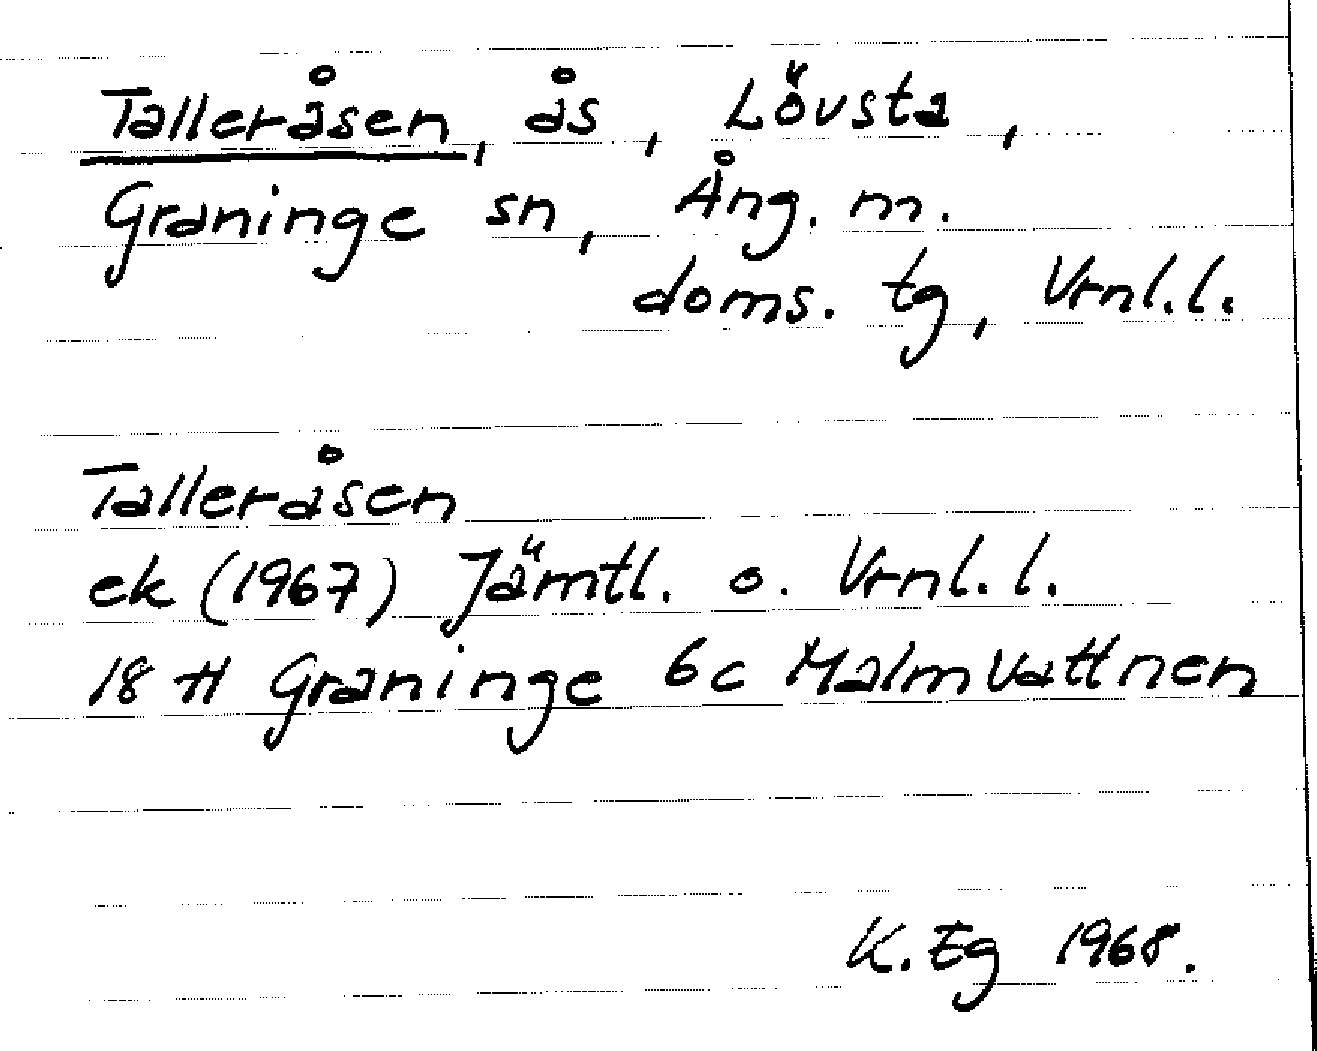 Talleråsen, ås, Lövsta,
Graninge sn, Ång. m.
doms. tg, Vrnl.l.
Talleråsen
ek (1967) Jämtl. o. Vrnl. l.
18 H Graninge 6c Malmvattnen
K. Eg 1968.